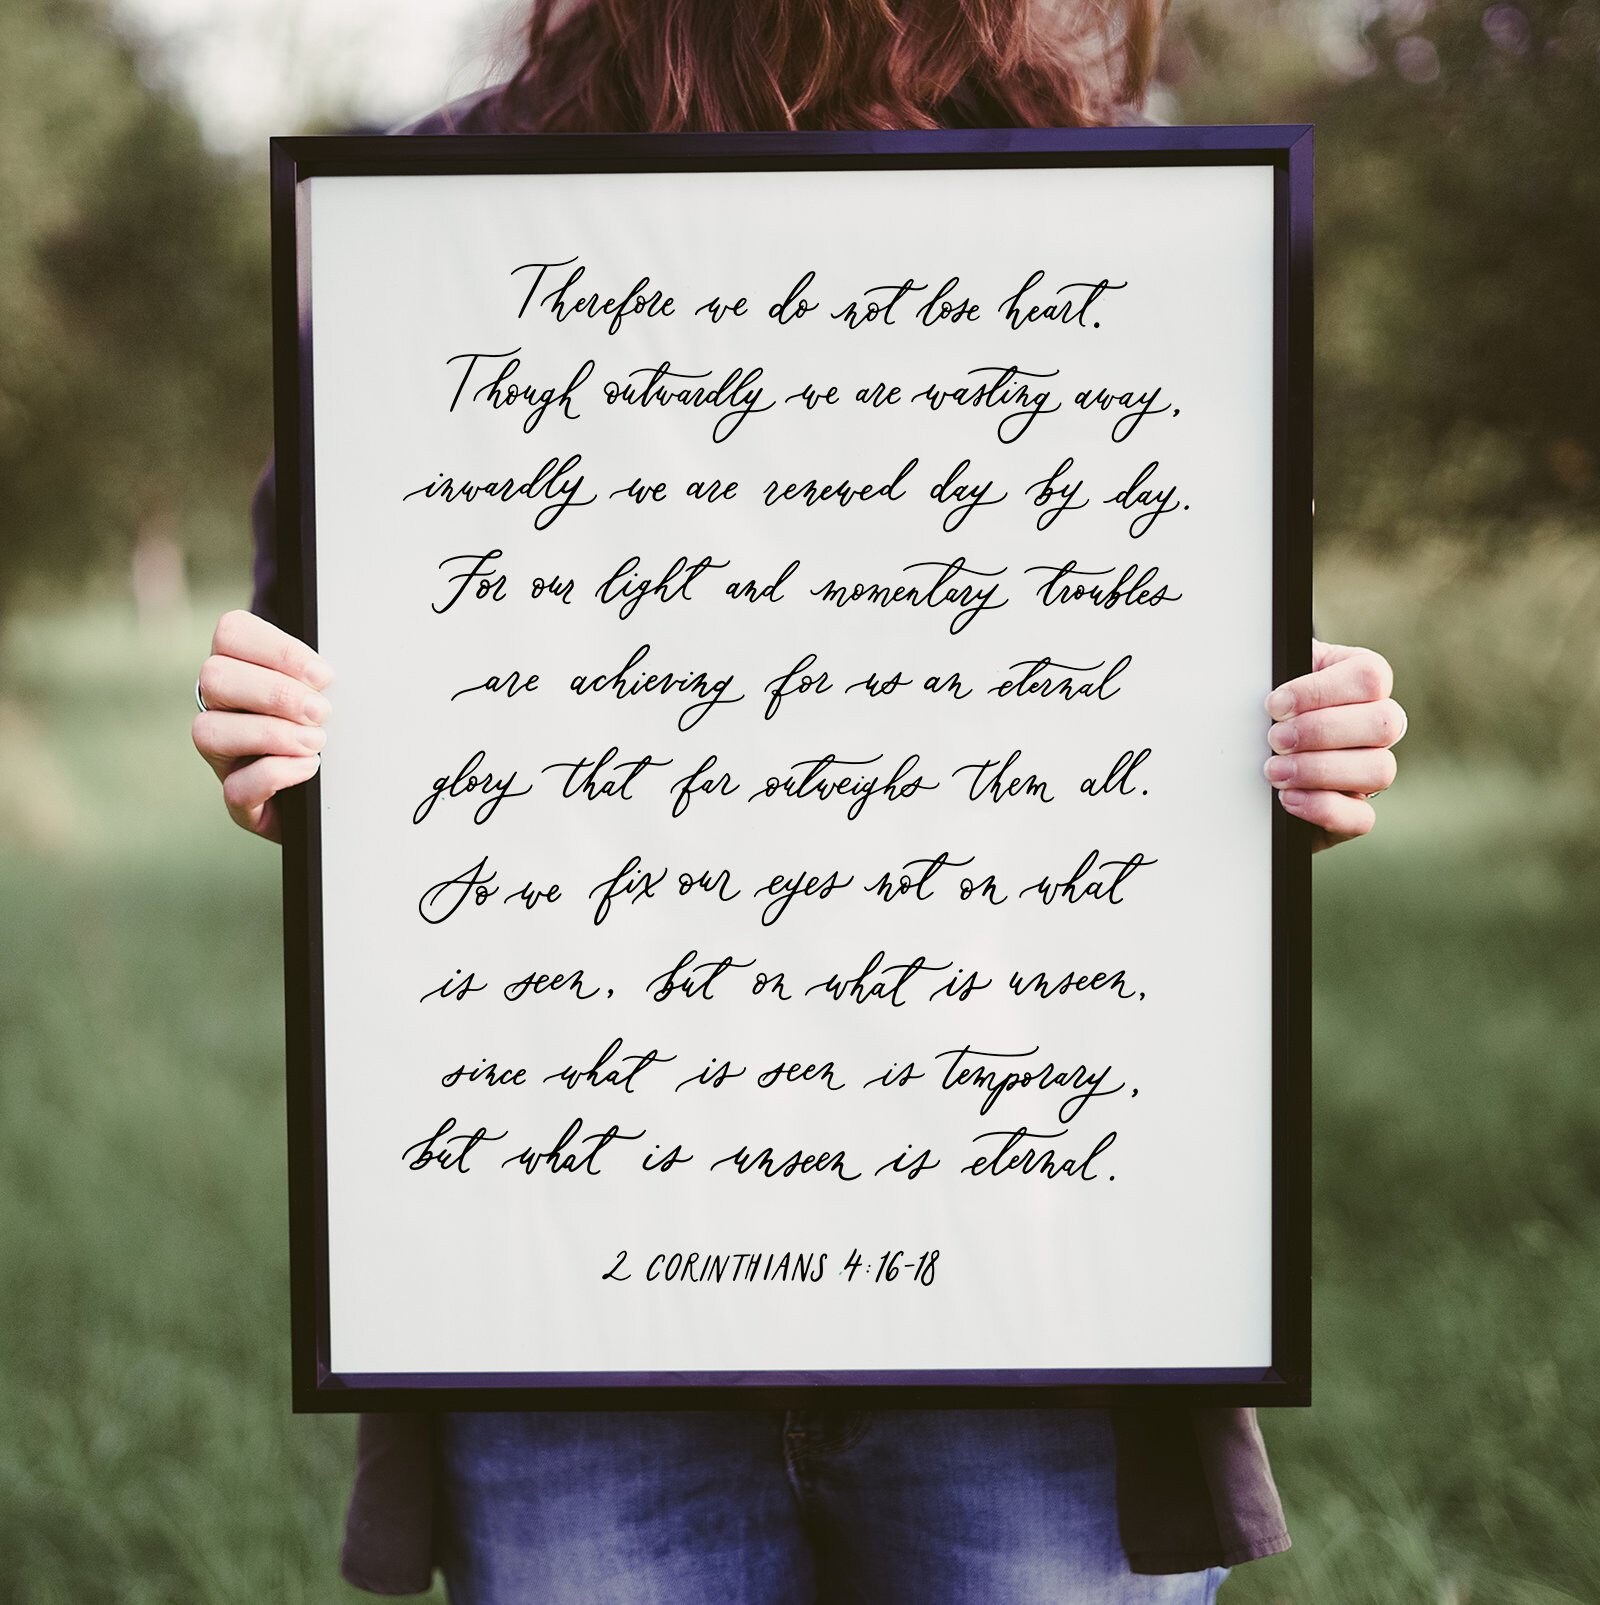 Therefore we do not lose heart.
Though outwardly we are wasting away,
inwardly we are renewed day by day.
For our light and momentary troubles
are achieving for us an eternal
glory that far outweighs them all.
So we fix our eyes not on what
is seen, but on what is unseen,
since what is seen is temporary,
but what is unseen is eternal.
2 CORINTHIANS 4:16-18